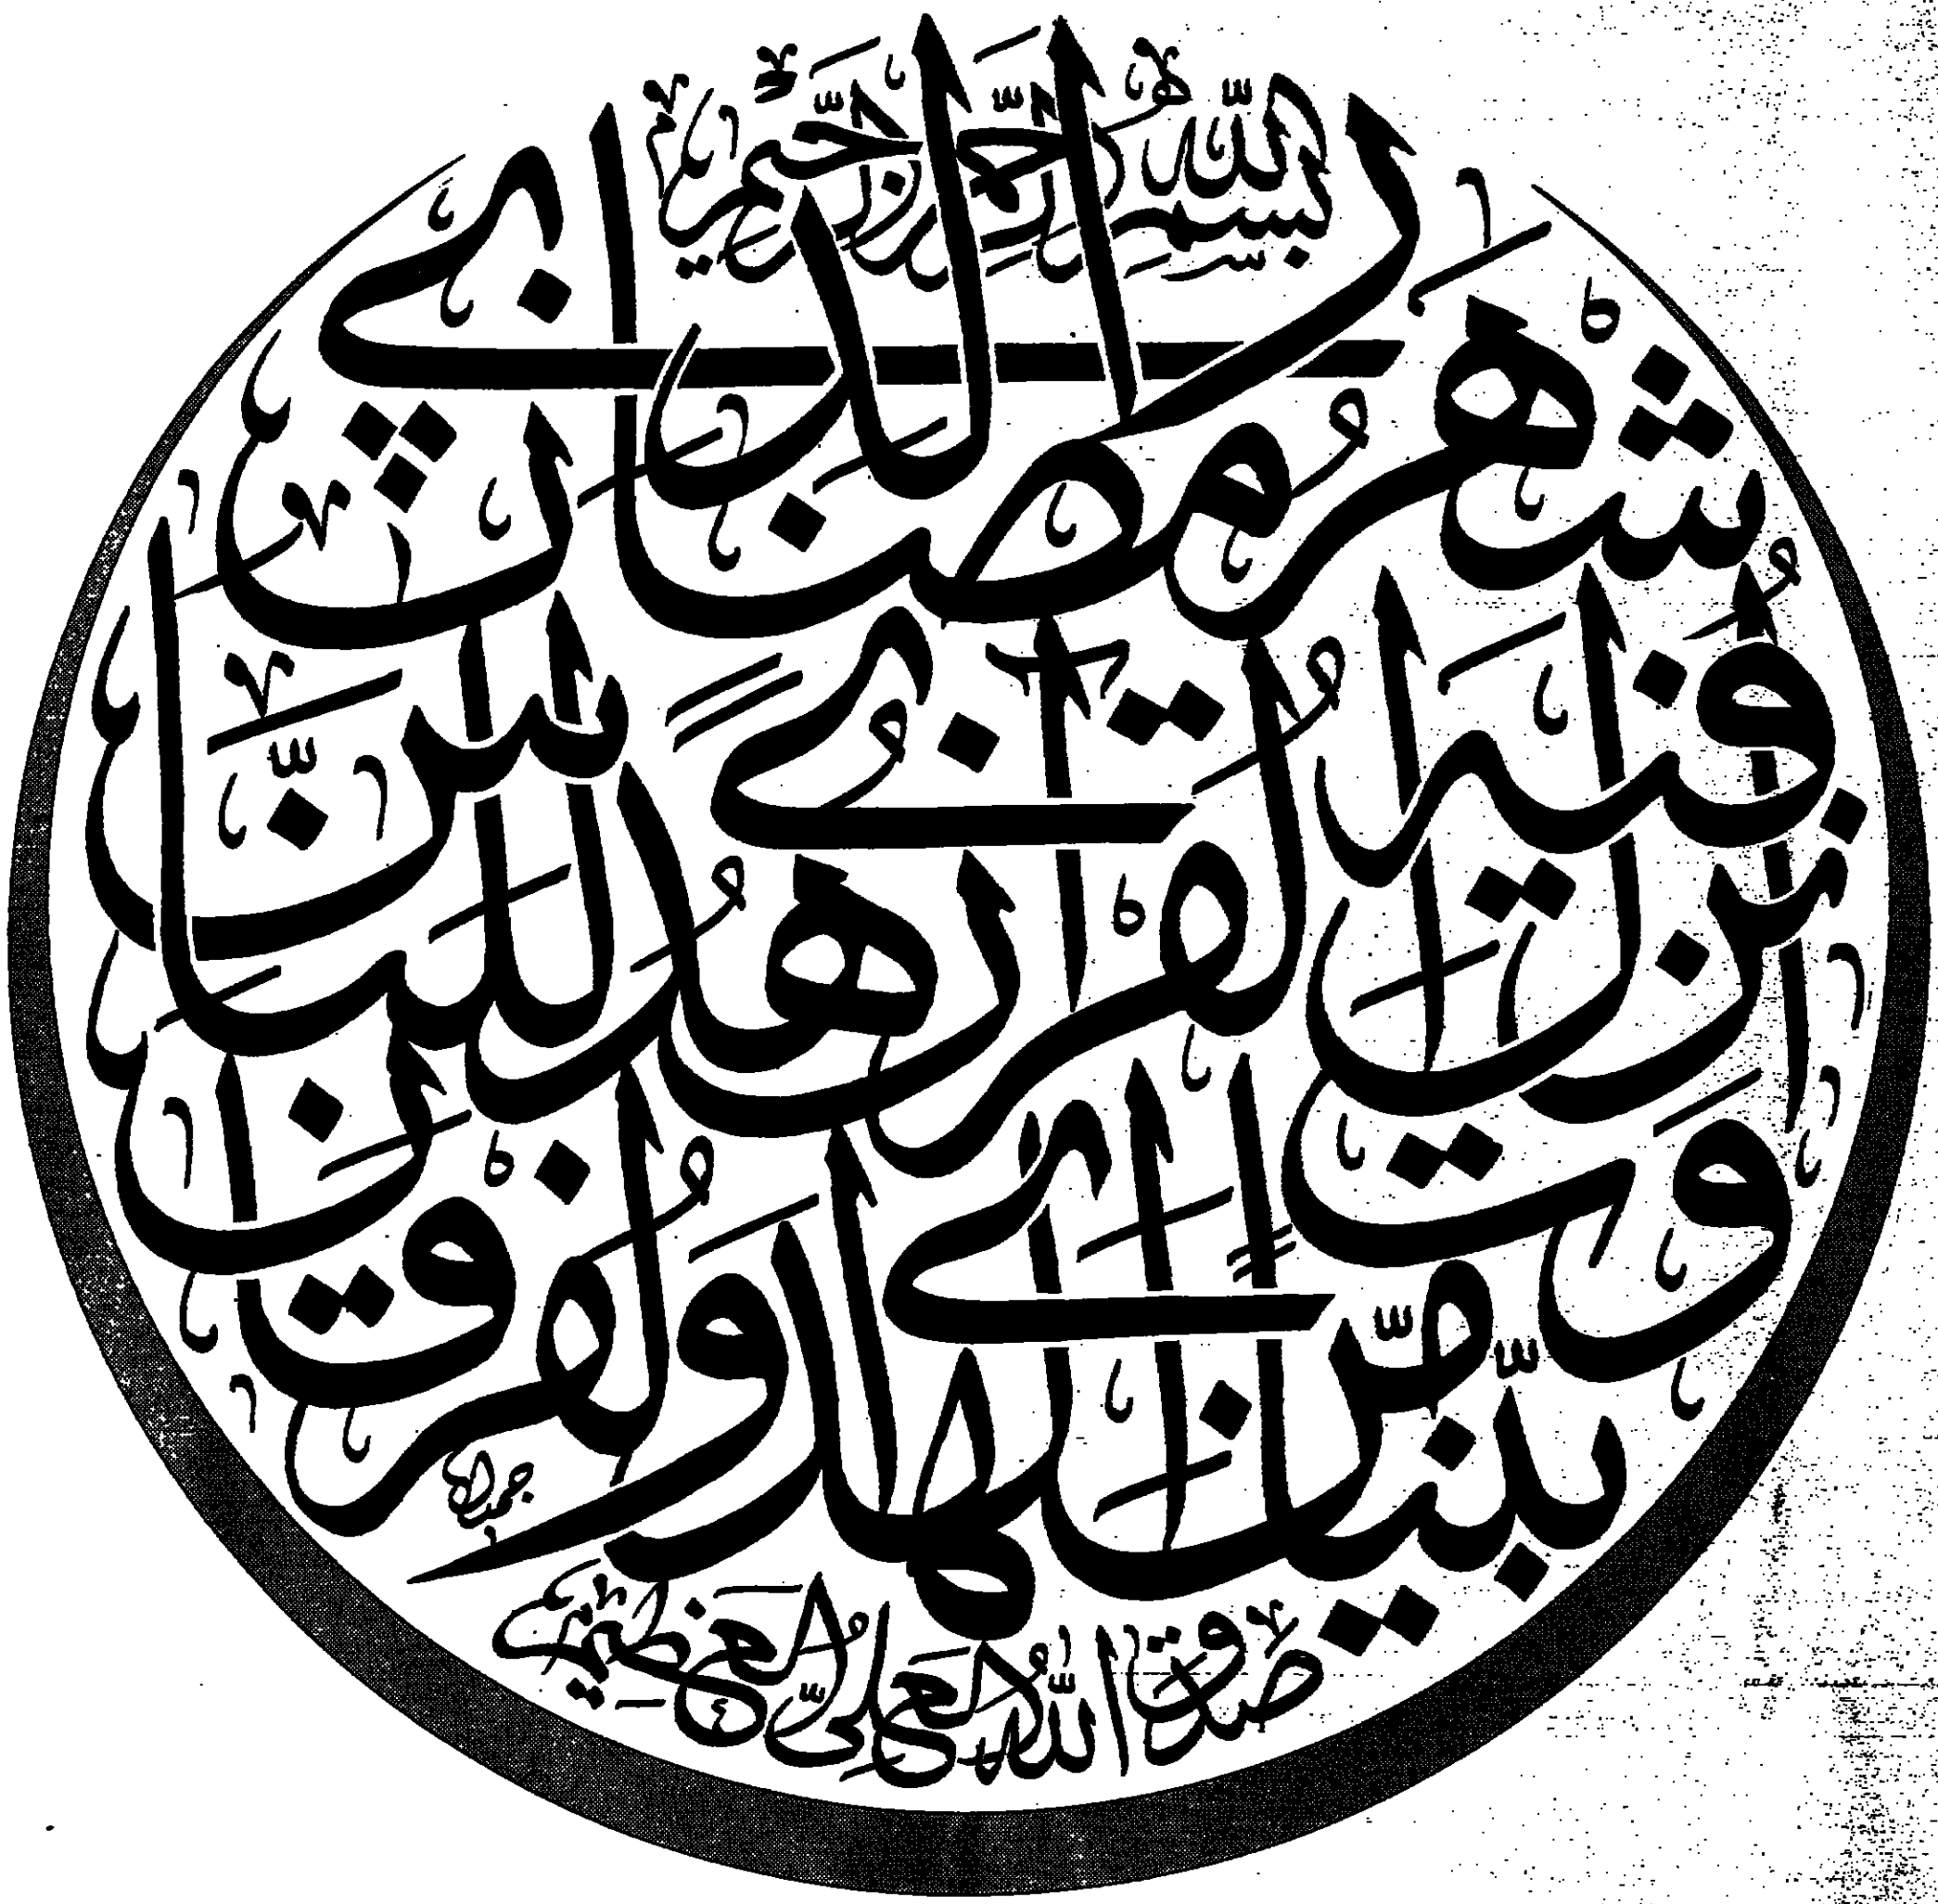 بسم الله الرحمن الرحيم
شهر رمضان الذي
أنزل فيه القرآن هدى للناس
وبينات من
الهدى والفرقان
صدق الله العلي العظيم